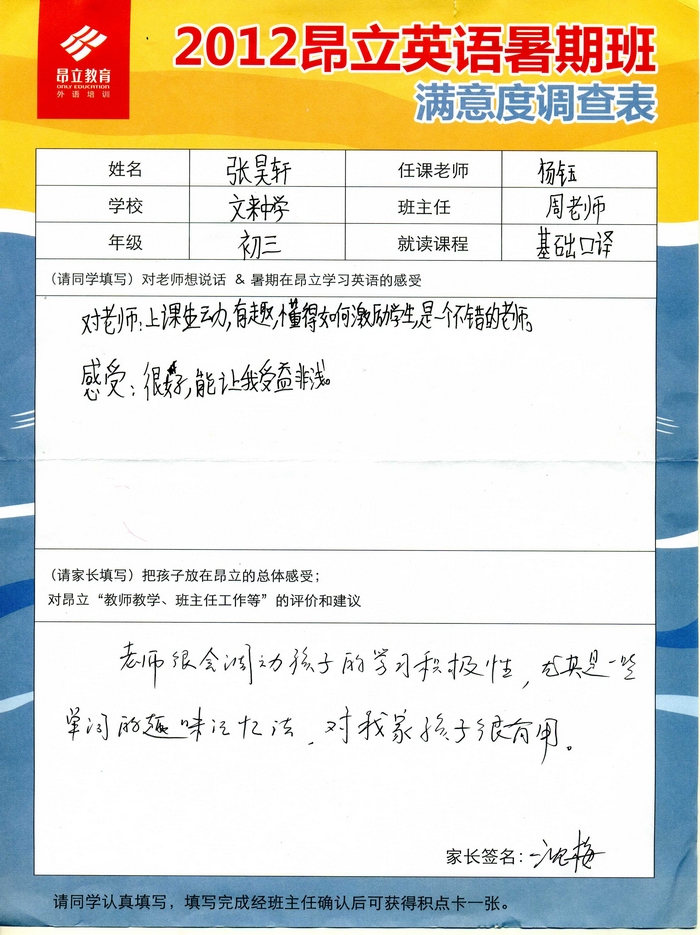 昂立教育
ONLY EDUCATION
外语培训
2012昂立英语暑期班
满意度调查表
姓名 张昊轩 任课老师 杨钰
学校 文来中学 班主任 周老师
年级 初三 就读课程 基础口译
(请同学填写)对老师想说话 & 暑期在昂立学习英语的感受
对老师:上课生动,有趣,懂得如何激励学生,是一个不错的老师。
感受:很好,能让我受益非浅。
(请家长填写)把孩子放在昂立的总体感受;
对昂立“教师教学、班主任工作等”的评价和建议
老师很会调动孩子的学习积极性,尤其是一些
单词的趣味记忆法,对我家孩子很有用。
家长签名:沈梅
请同学认真填写,填写完成经班主任确认后可获得积点卡一张。